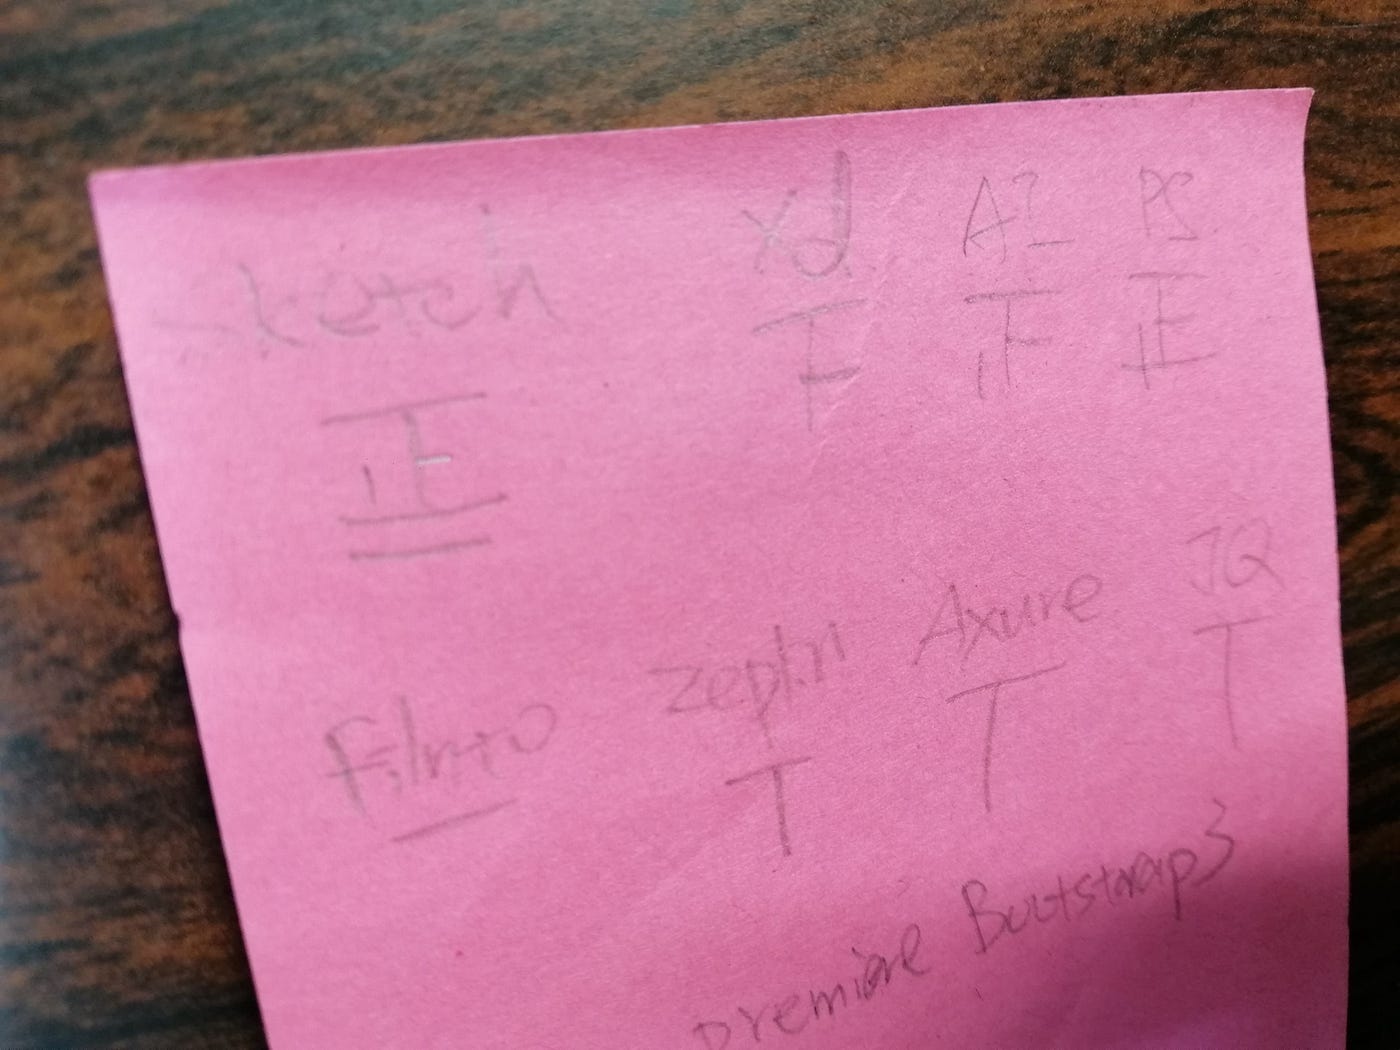 sketch xd AI PS
正 下 正 正
Zeplin Axure JQ
T T T
premiere Bootstrap3